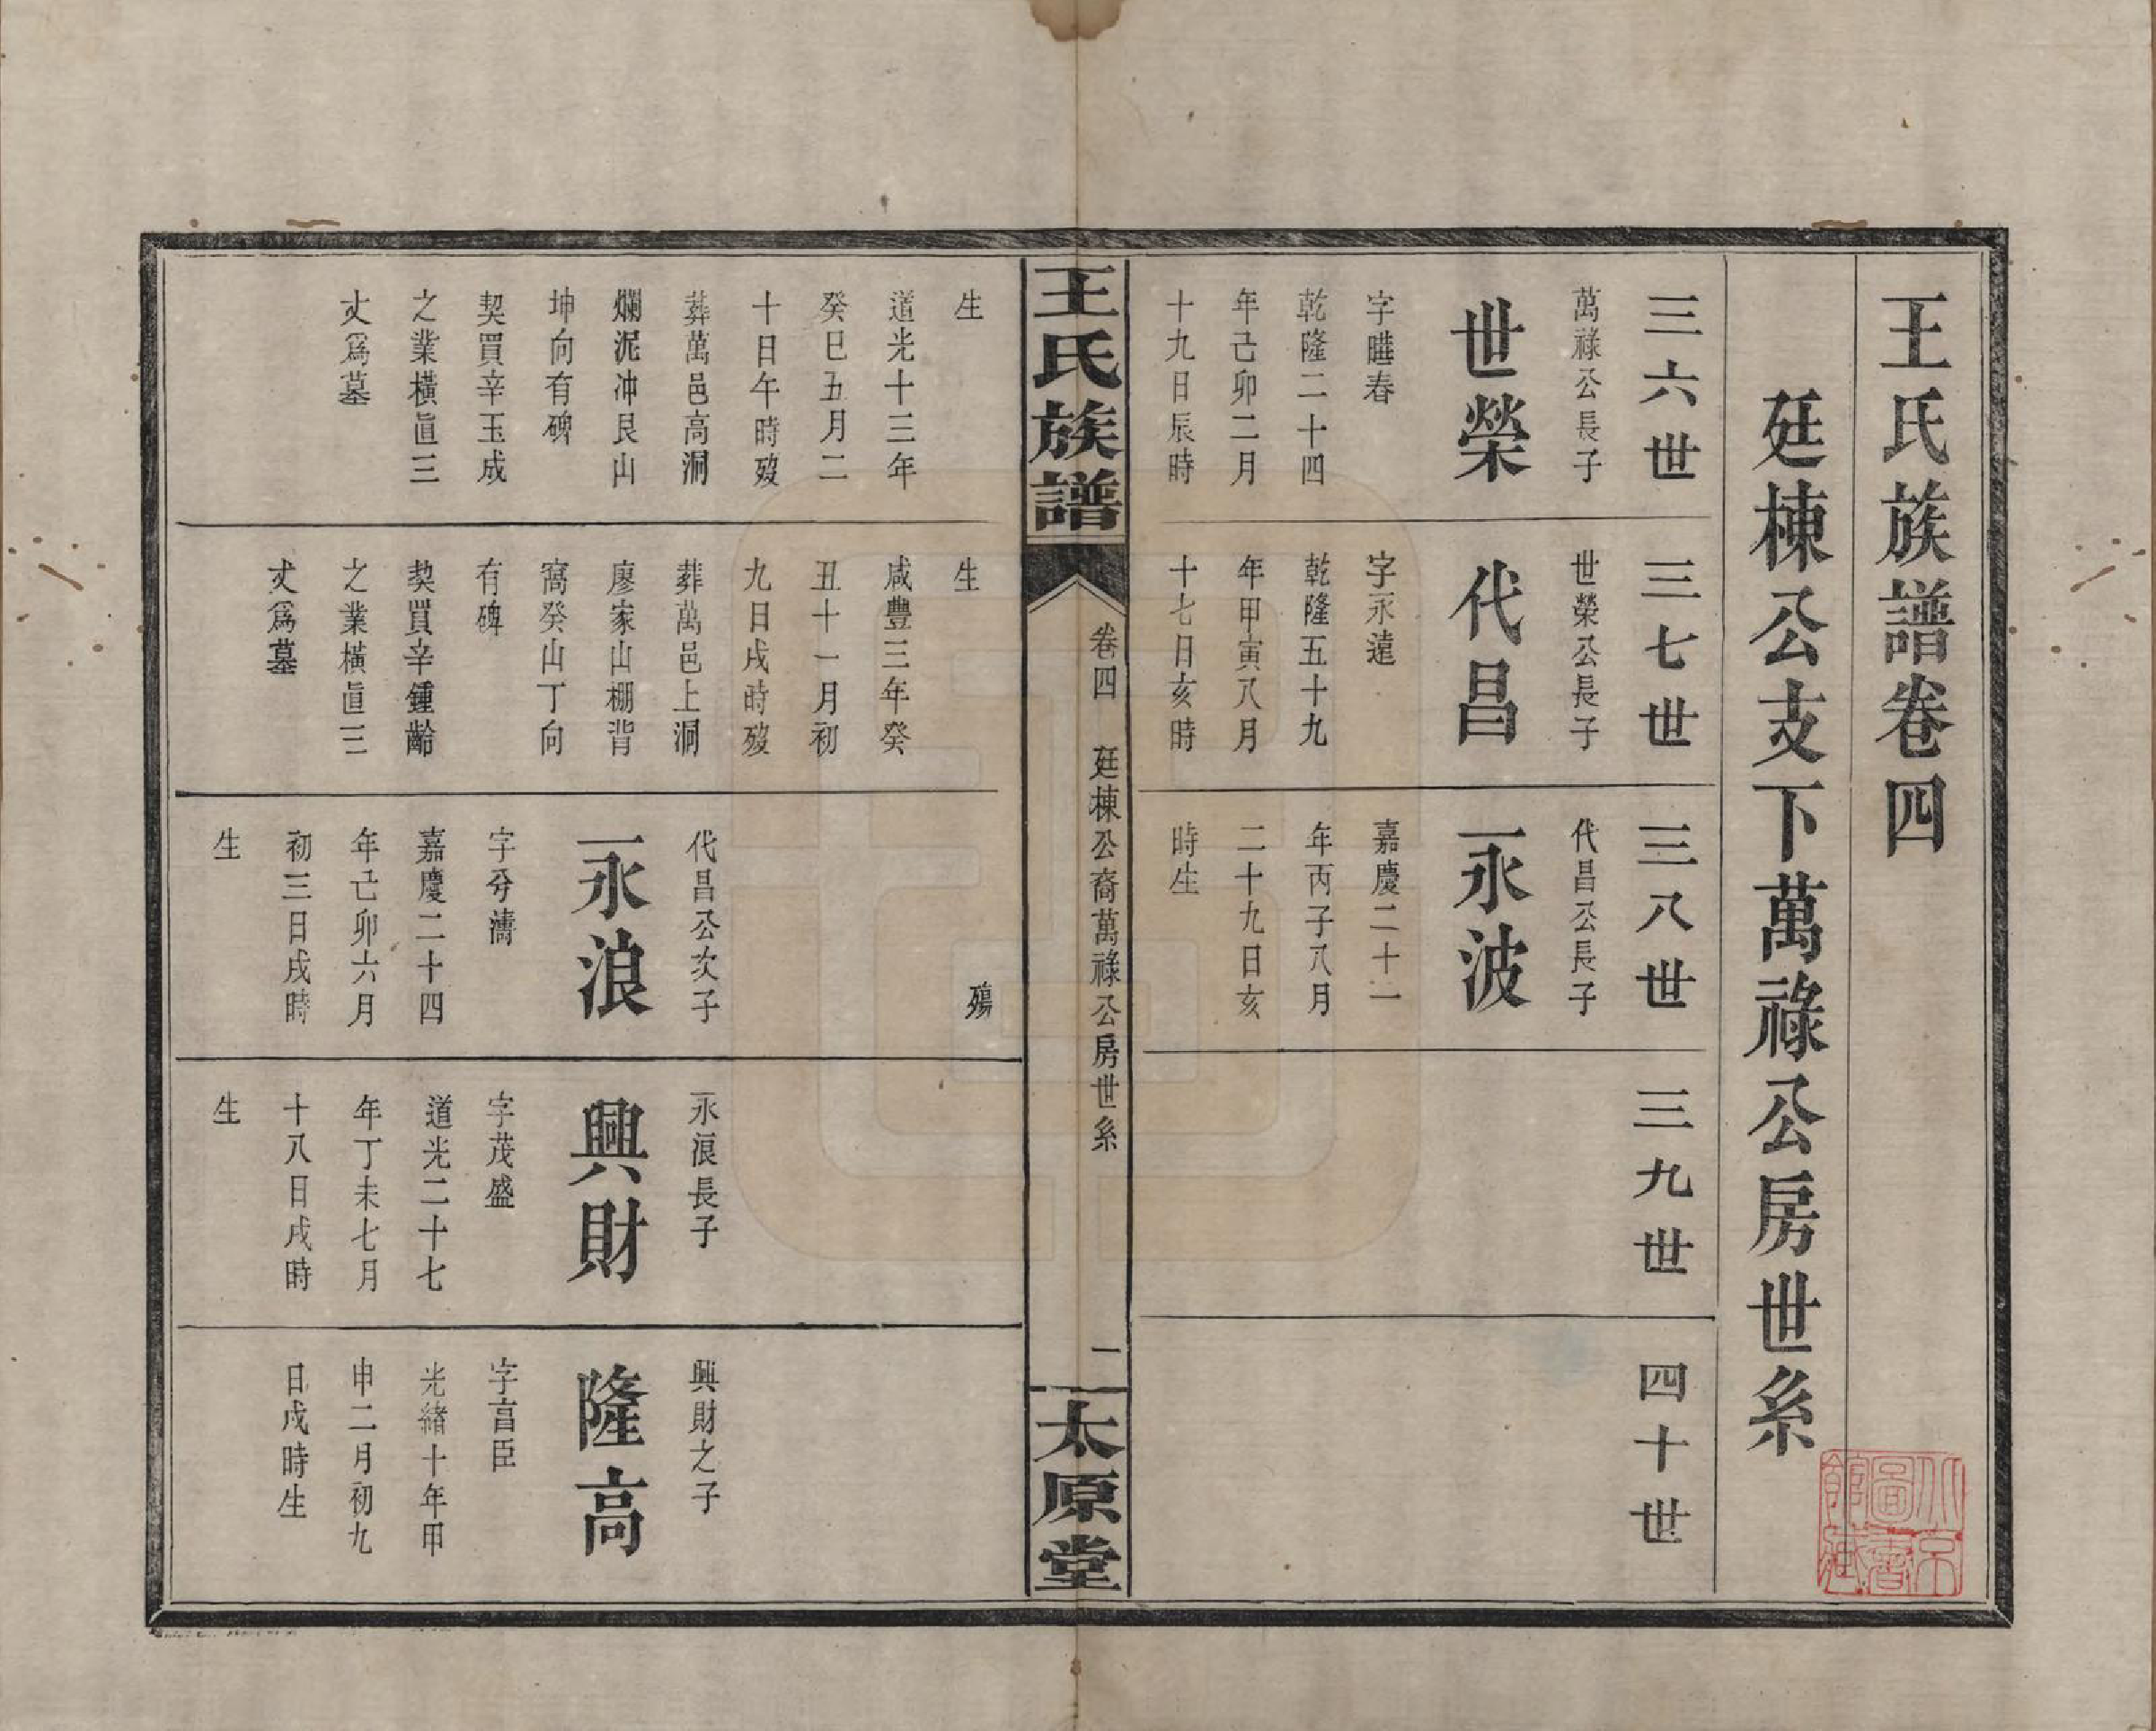 王氏族譜卷四
廷棟公支下萬祿公房世系
三六世
萬祿公長子
世榮
字暀春
乾隆二十四
年己卯二月
十九日辰時
三七世
世榮公長子
代昌
字永遠
乾隆五十九
年甲寅八月
十七日亥時
三八世
代昌公長子
永波
嘉慶二十一
年丙子八月
二十九日亥
時生
三九世
四十世
王氏族譜
卷四
廷棟公裔萬祿公房世系
一
太原堂
生
道光十三年
癸巳五月二
十日午時歿
葬萬邑高洞
爛泥冲艮山
坤向有碑
契買辛玉成
之業橫直三
丈爲墓
生
咸豐三年癸
丑十一月初
九日戌時歿
葬萬邑上洞
廖家山棚背
窩癸山丁向
有碑
契買辛鍾齡
之業橫直三
丈爲墓
殤
代昌公次子
永浪
字兮濤
嘉慶二十四
年己卯六月
初三日戌時
生
永浪長子
興財
字茂盛
道光二十七
年丁未七月
十八日戌時
生
興財之子
隆高
字富臣
光緒十年甲
申二月初九
日戌時生
北京
圖書
館藏